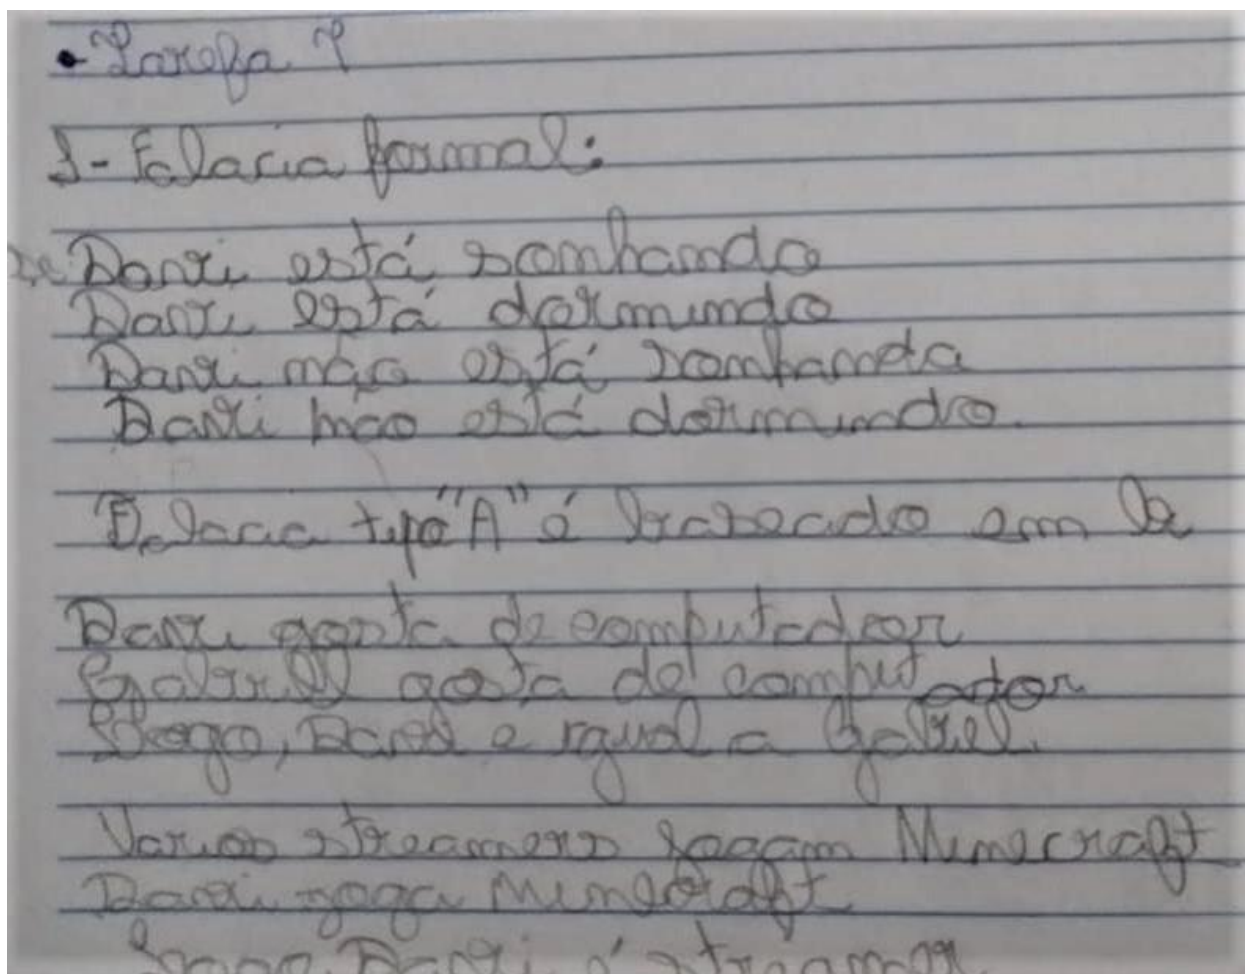 • Tarefa 7
1- Falacia formal:
Se Davi está sonhando
Davi está dormindo
Davi não está sonhando
Davi não está dormindo.
Falacia tipo "A" é baseado em
Davi gosta de computador
Gabriel gosta de computador
Logo, Davi e igual a Gabriel.
Varios streamers jogam Minecraft
Davi joga Minecraft
Logo Davi é streamer